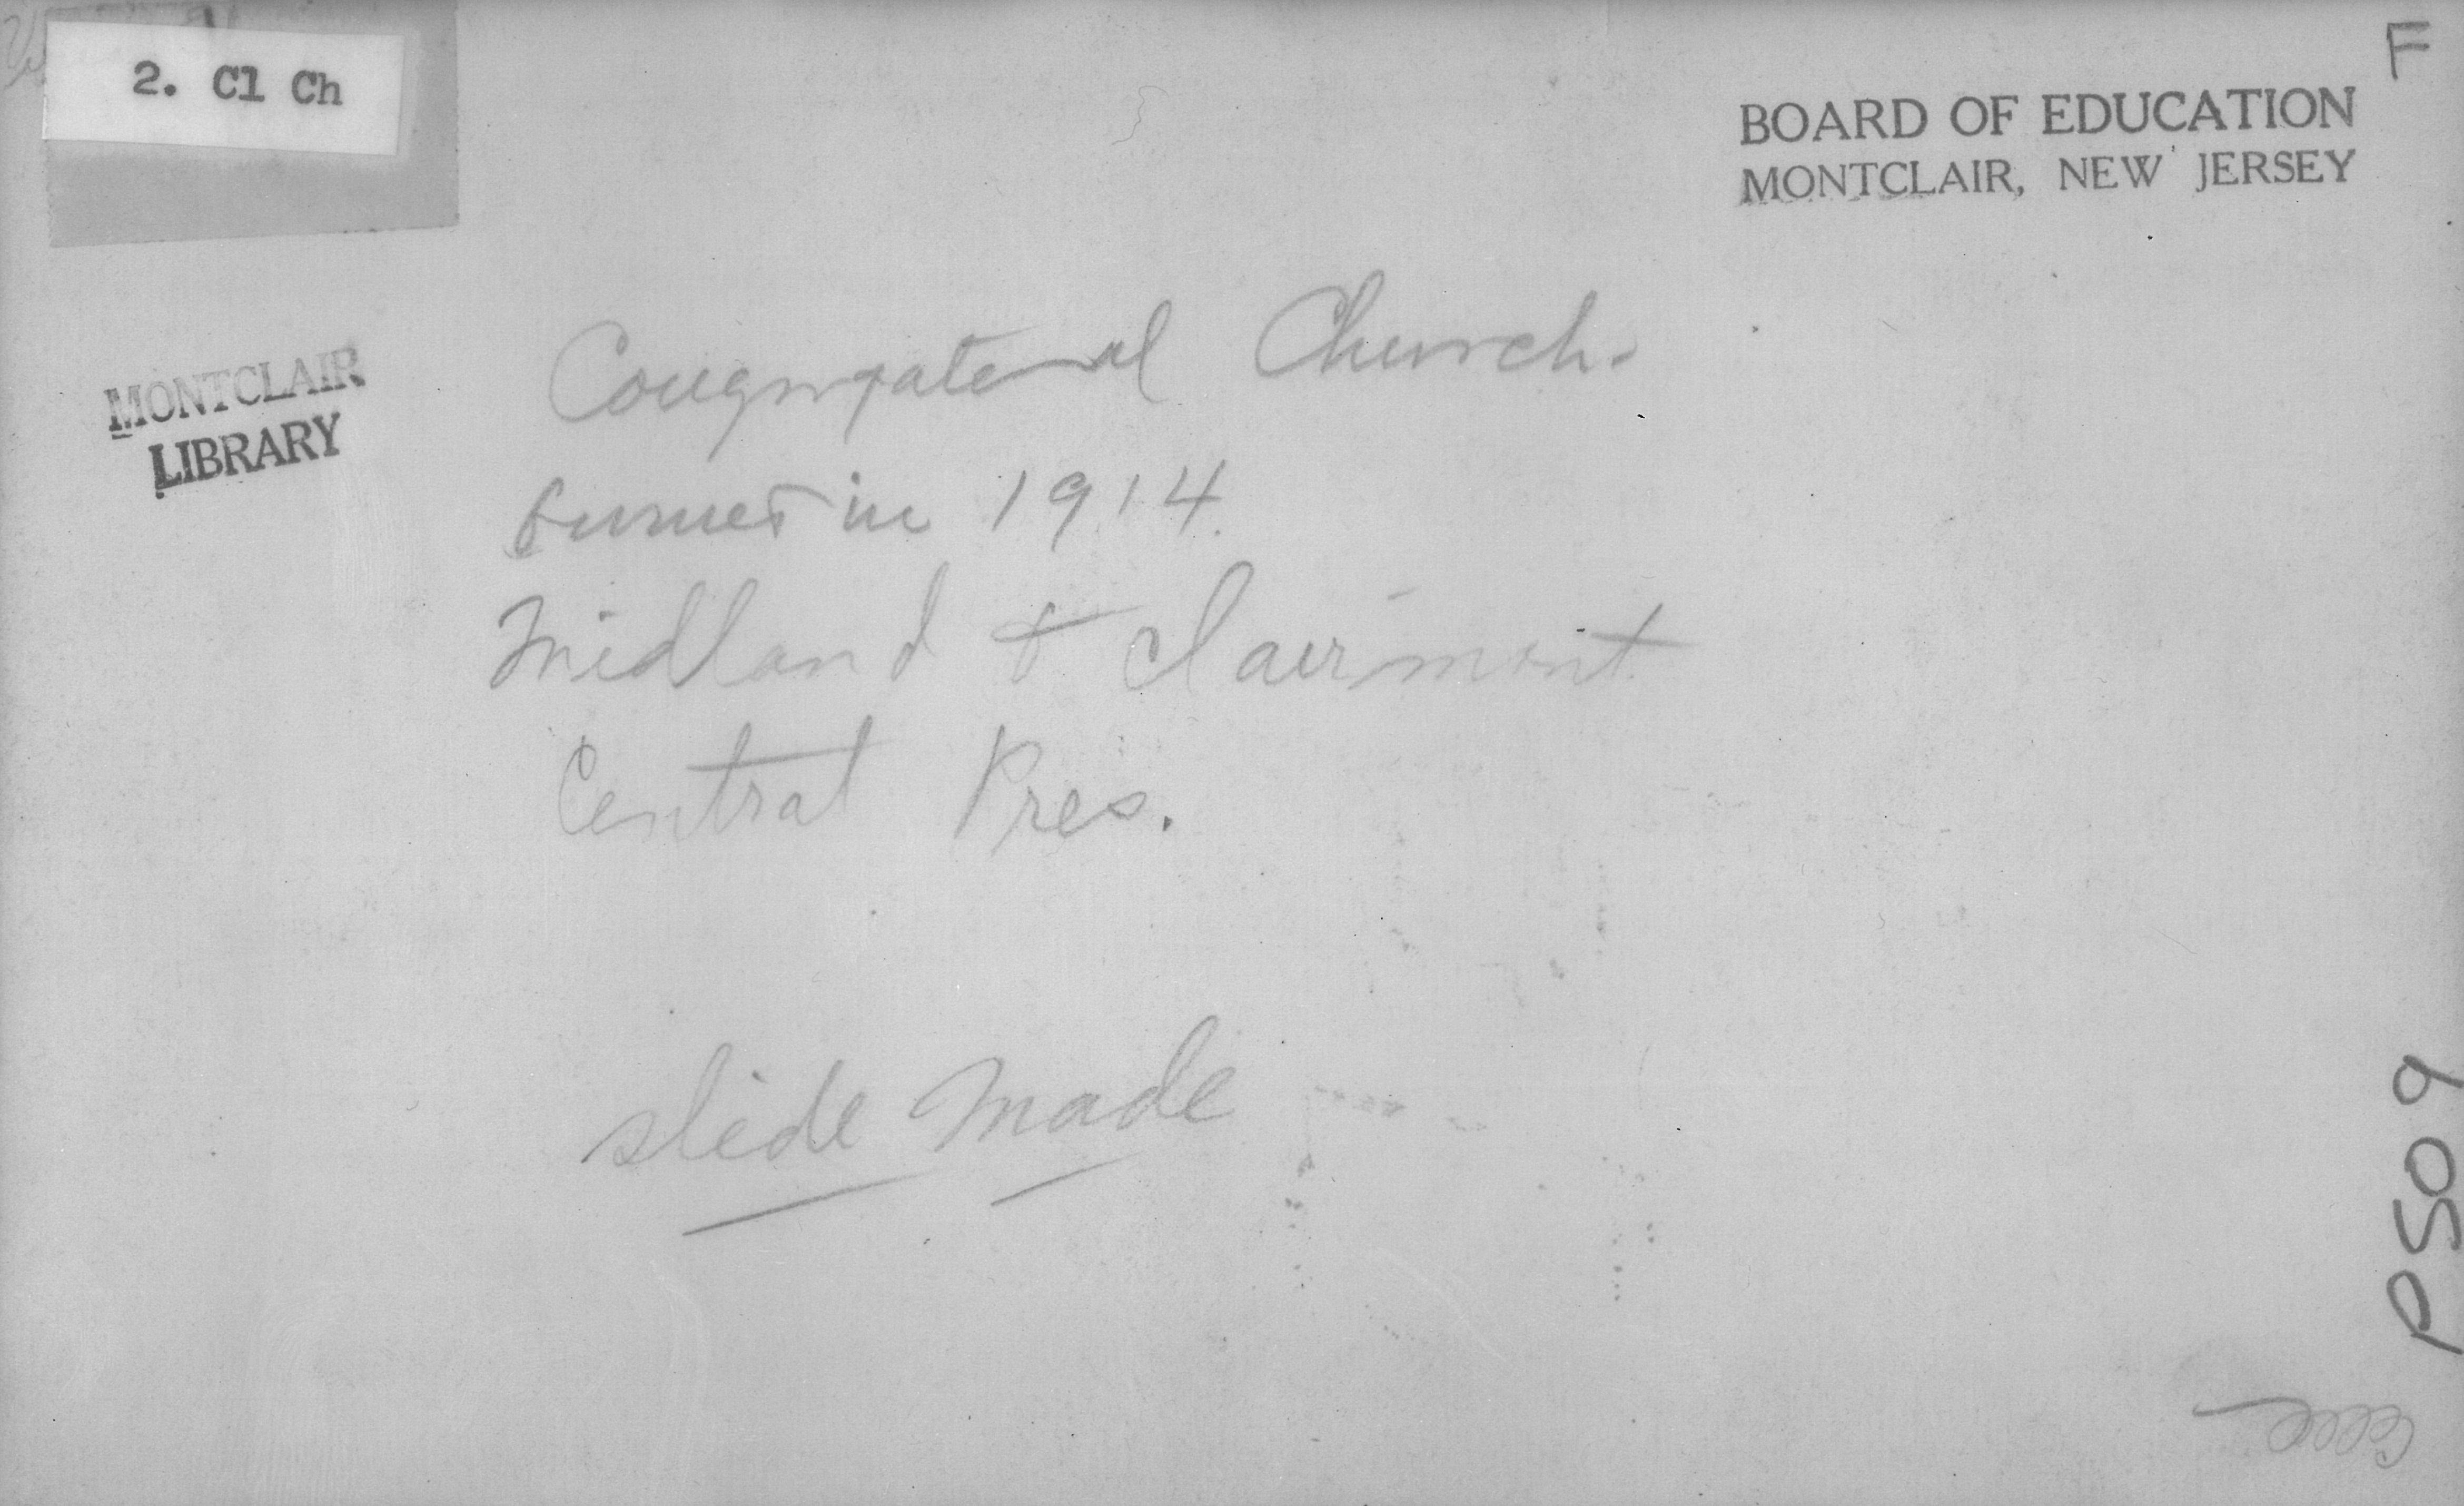 2. Cl Ch
F
BOARD OF EDUCATION
MONTCLAIR, NEW JERSEY
MONTCLAIR
LIBRARY
Congregational Church.
burned in 1914.
Midland & Clairmont
Central Pres.
slide made
PS09